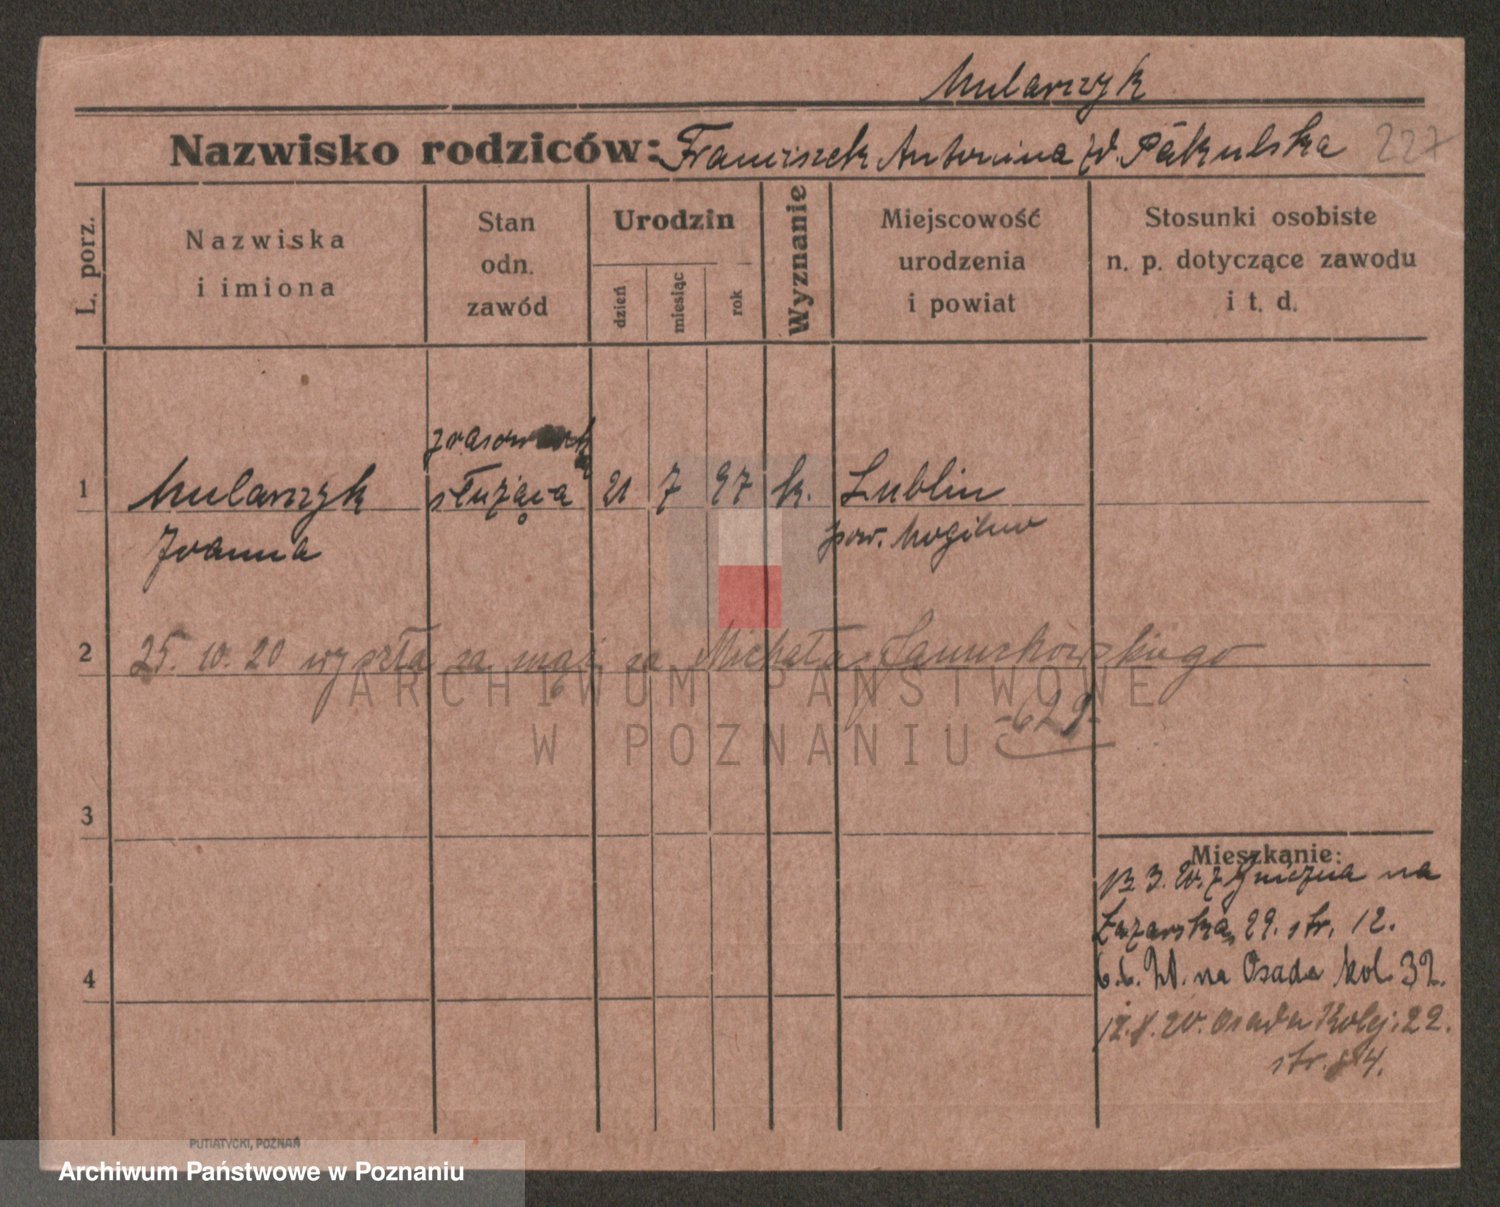 Mularczyk
Nazwisko rodziców: Franciszek Antonina zd. Pakulska 227
L. porz.
Nazwiska
i imiona
Stan
odn.
zawód
Urodzin
dzień
miesiąc
rok
Wyznanie
Miejscowość
urodzenia
i powiat
Stosunki osobiste
n. p. dotyczące zawodu
i t. d.
1
Mularczyk
Joanna
służąca
21
7
97
k.
Lublin
pow. Mogilno
2
25. 10. 20 wyszła za mąż za Michała
- 629 -
3
4
Mieszkanie:
13. 3. 20. z Gniezna na
Łazarska 29. str. 12.
6.6. 20. na Osada kol. 32.
12.8.20. Osada Kolej. 22.
str. 84.
PUTIATYCKI, POZNAŃ
ARCHIWUM PAŃSTWOWE
W POZNANIU
Archiwum Państwowe w Poznaniu